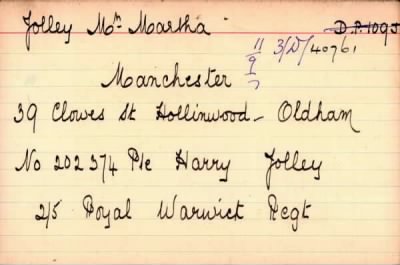 Jolley Mrs Martha D.P. 1095
11/9/7 3/D/40761
Manchester
39 Clowes St Hollinwood - Oldham
No 202374 Pte Harry Jolley
2/5 Royal Warwick Regt